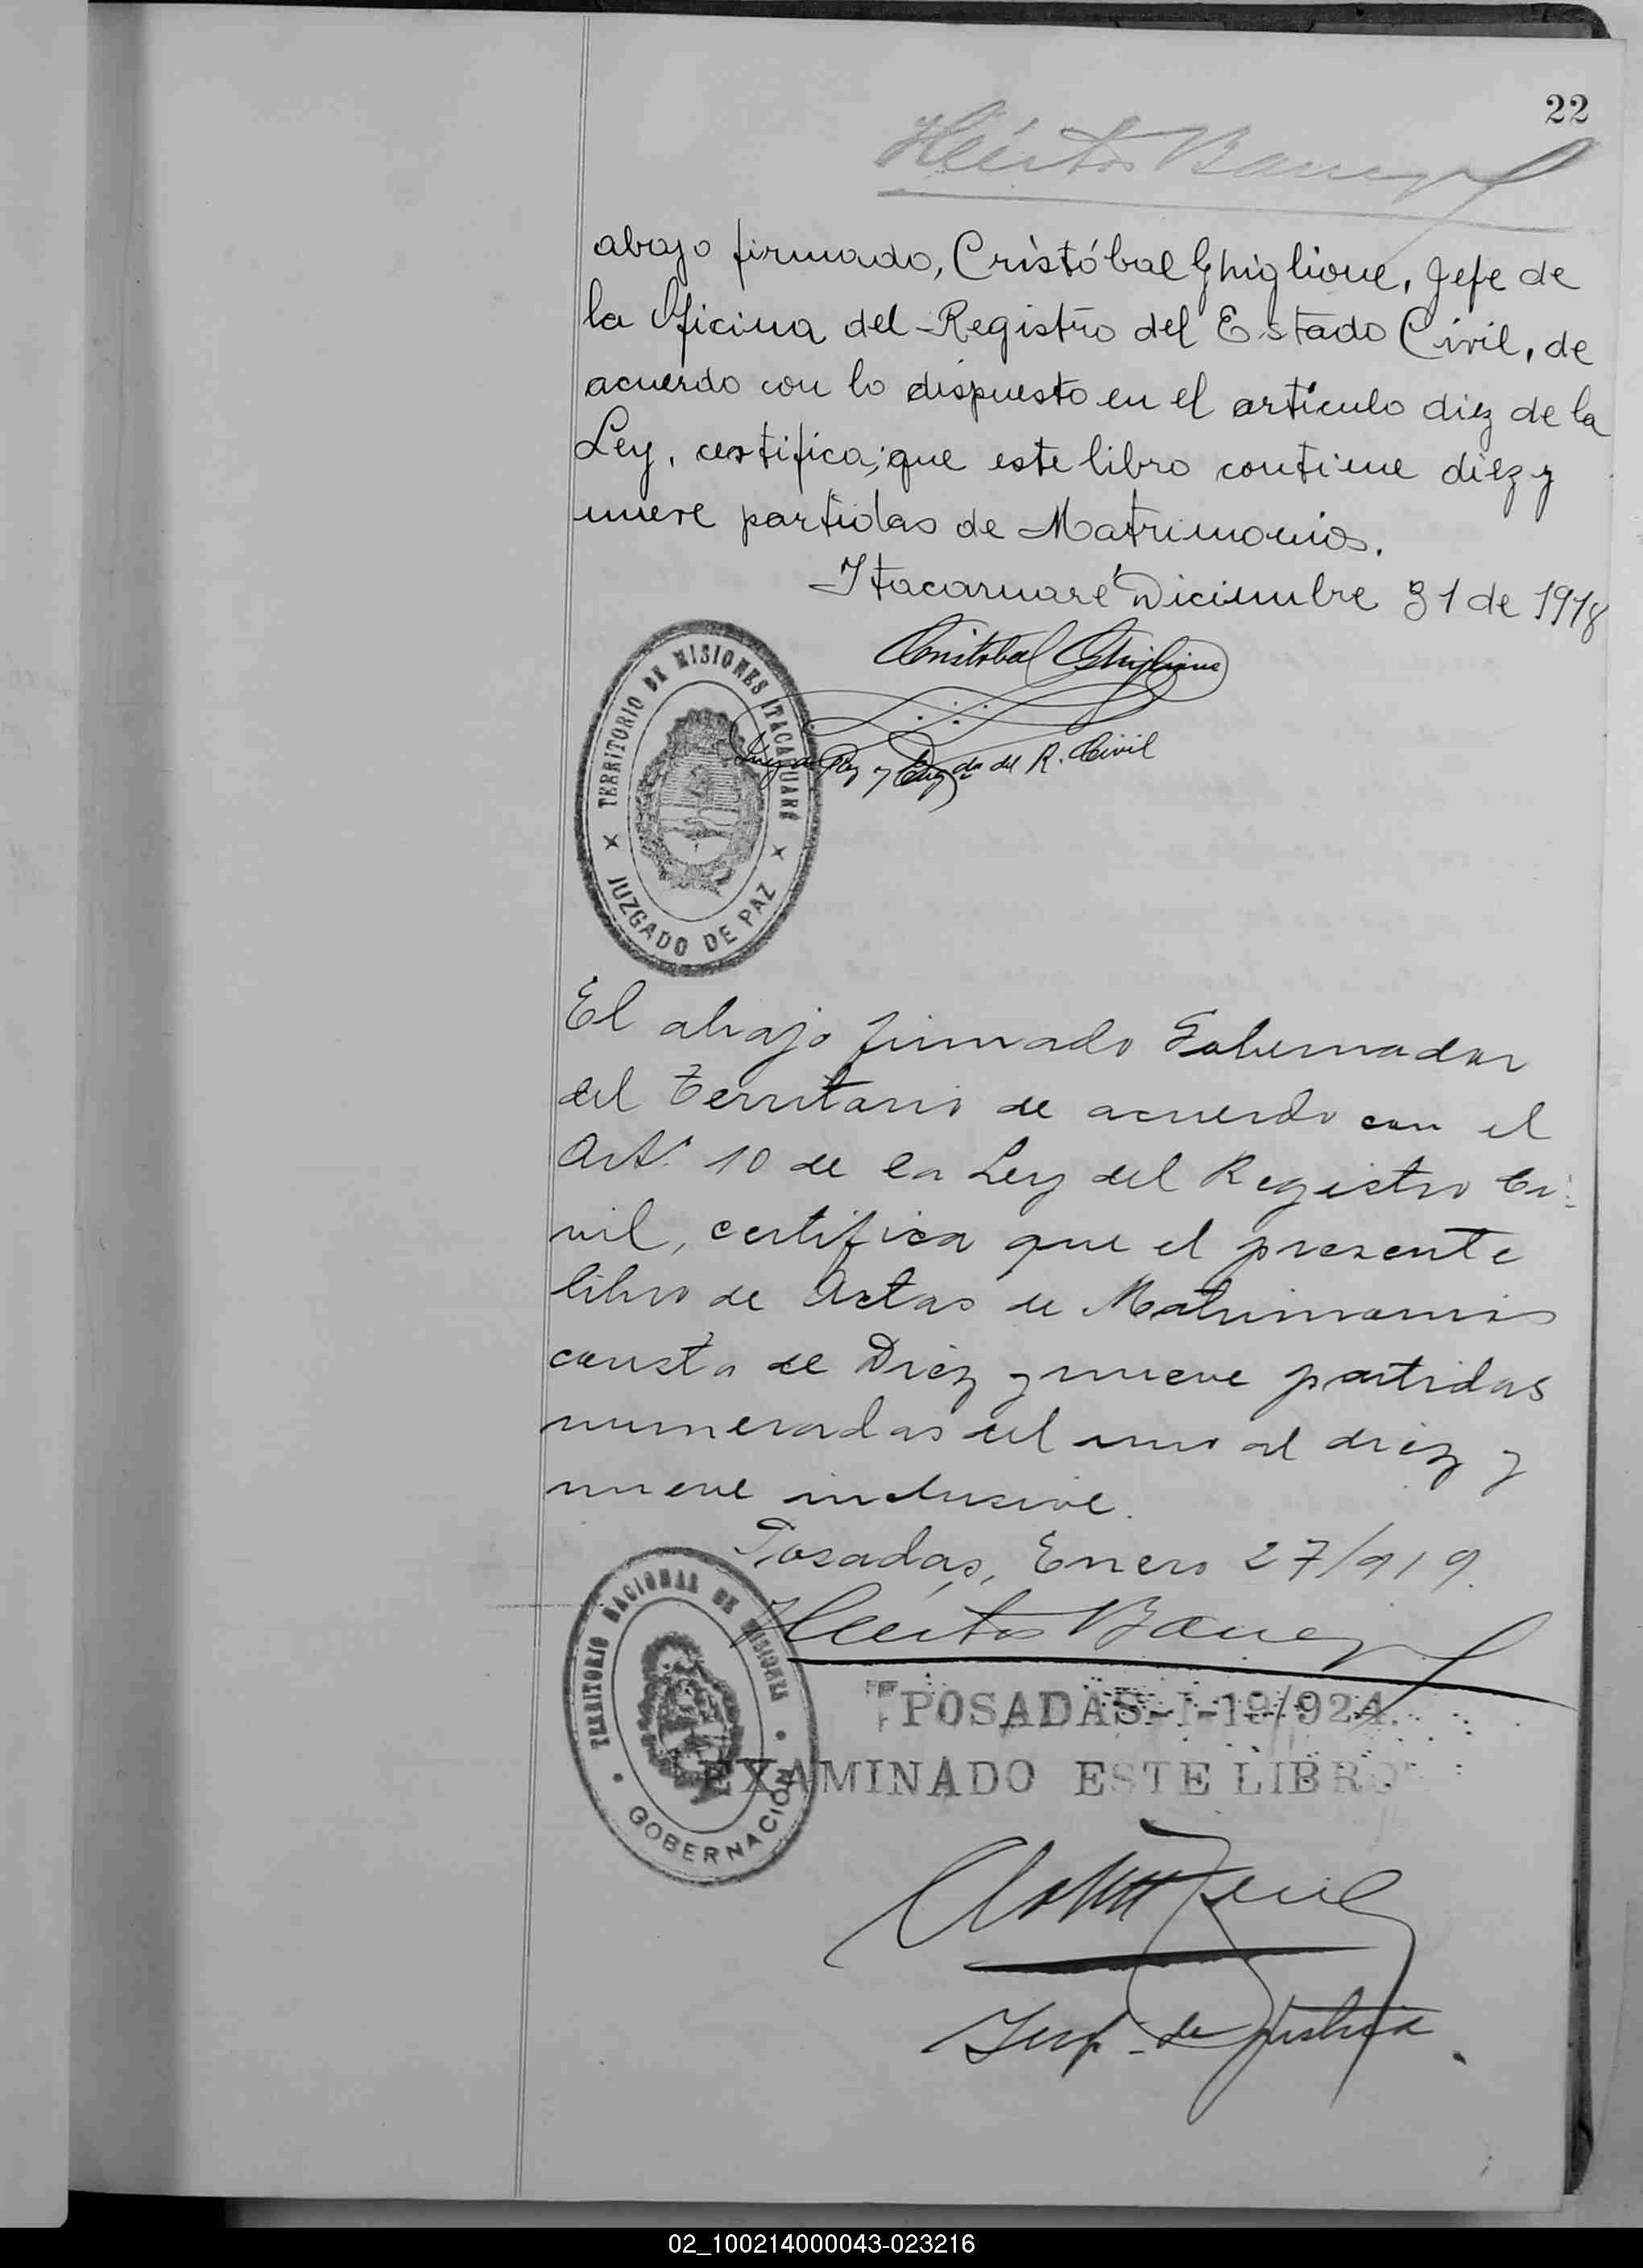 22
Héctor Barreyro
abajo firmado, Cristóbal Ghiglione, Jefe de
la Oficina del Registro del Estado Civil, de
acuerdo con lo dispuesto en el artículo diez de la
Ley, certifica; que este libro contiene diez y
nueve partidas de Matrimonios.
Itacaruaré Diciembre 31 de 1918
Cristobal Ghiglione
Juez de Paz y Encgdo del R. Civil
TERRITORIO DE MISIONES ITACARUARÉ
JUZGADO DE PAZ
El abajo firmado Gobernador
del Territorio de acuerdo con el
Art. 10 de la Ley del Registro Ci-
vil, certifica que el presente
libro de Actas de Matrimonios
consta de Diez y nueve partidas
numeradas del uno al diez y
nueve inclusive.
Posadas, Enero 27/919.
Héctor Barreyro
TERRITORIO NACIONAL DE MISIONES
GOBERNACIÓN
POSADAS-I-19/924.
EXAMINADO ESTE LIBRO
Insp. de Justicia
02_100214000043-023216